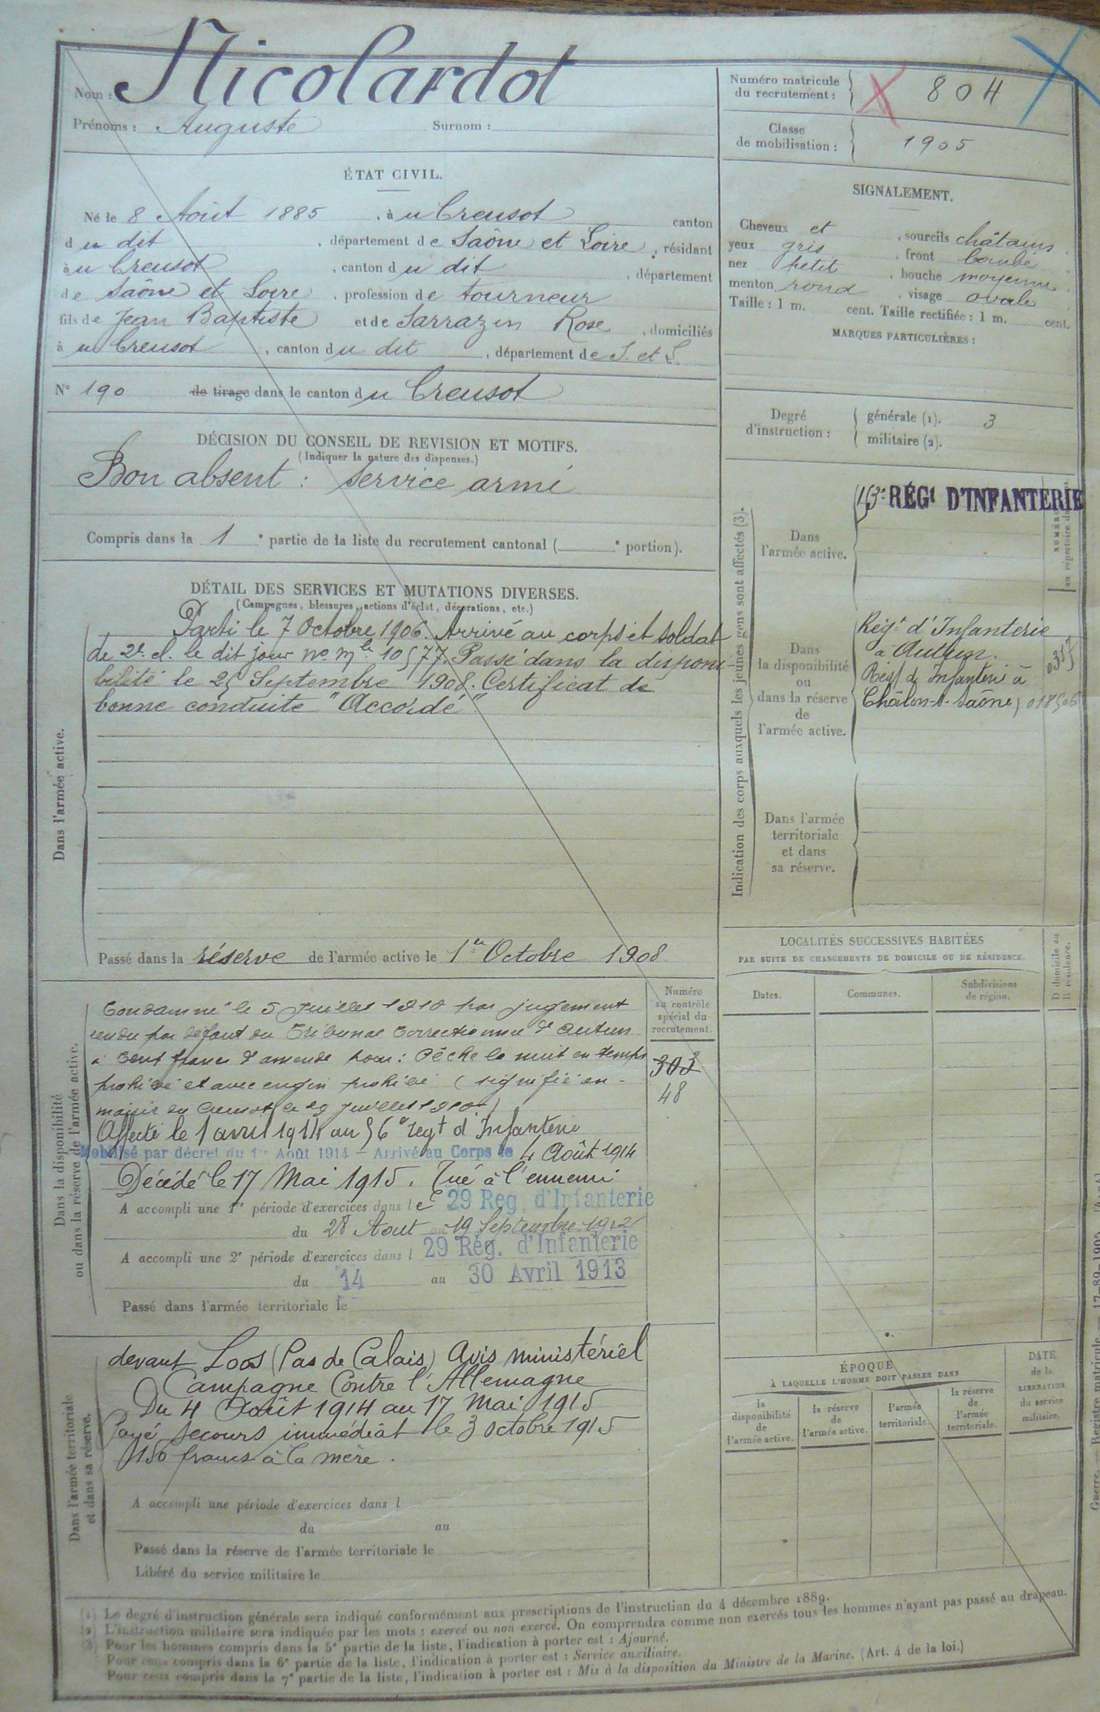 Nom : Nicolardot
Prénoms : Auguste Surnom :
Numéro matricule
du recrutement : 804
Classe
de mobilisation : 1905
ÉTAT CIVIL.
Né le 8 Août 1885, à u Creusot canton
d u dit, département de Saône et Loire, résidant
à u Creusot, canton d u dit, département
de Saône et Loire, profession de tourneur
fils de Jean Baptiste et de Sarrazin Rose, domiciliés
à u Creusot, canton d u dit, département de S. et L.
N° 190 de tirage dans le canton d u Creusot
SIGNALEMENT.
Cheveux et, sourcils châtains
yeux gris, front bombé
nez petit, bouche moyenne
menton rond, visage ovale
Taille : 1 m. cent. Taille rectifiée : 1 m. cent.
MARQUES PARTICULIÈRES :
Degré
d'instruction :
générale (1). 3
militaire (2).
DÉCISION DU CONSEIL DE REVISION ET MOTIFS.
(Indiquer la nature des dispenses.)
Bon absent : service armé
Compris dans la 1e partie de la liste du recrutement cantonal ( e portion).
DÉTAIL DES SERVICES ET MUTATIONS DIVERSES.
(Campagnes, blessures, actions d'éclat, décorations, etc.)
Dans l'armée active.
Parti le 7 Octobre 1906. Arrivé au corps et soldat
de 2e cl. le dit jour no mle 10577. Passé dans la disponi
bilité le 25 Septembre 1908. Certificat de
bonne conduite "Accordé"
Passé dans la réserve de l'armée active le 1er Octobre 1908
Indication des corps auxquels les jeunes gens sont affectés (3).
Dans
l'armée active.
RÉGt D'INFANTERIE
Dans
la disponibilité
ou
dans la réserve
de
l'armée active.
Régt d'Infanterie
à Autun.
Régt d'Infanterie à
Châlon-s-Saône
Dans l'armée
territoriale
et dans
sa réserve.
LOCALITÉS SUCCESSIVES HABITÉES
PAR SUITE DE CHANGEMENTS DE DOMICILE OU DE RÉSIDENCE.
Dates.
Communes.
Subdivisions
de région.
D domicile ou
R résidence.
Dans la disponibilité
ou dans la réserve de l'armée active.
Numéro
au contrôle
spécial du
recrutement.
303
48
Condamné le 5 juillet 1910 par jugement
rendu par défaut du Tribunal correctionnel d'Autun
à cent francs d'amende pour : Pêche la nuit en temps
prohibé et avec engin prohibé (signifié en
mairie du Creusot le 29 juillet 1910)
Affecté le 1 avril 1914 au 56e regt d'Infanterie
Mobilisé par décret du 1er Août 1914 – Arrivé au Corps le 4 Août 1914
Décédé le 17 Mai 1915. Tué à l'ennemi
A accompli une 1e période d'exercices dans le 29 Rég. d'Infanterie
du 28 Aout au 19 Septembre 1912
A accompli une 2e période d'exercices dans l 29 Rég. d'Infanterie
du 14 au 30 Avril 1913
Passé dans l'armée territoriale le
Dans l'armée territoriale
et dans sa réserve.
devant Loos (Pas de Calais) Avis ministériel
Campagne Contre l'Allemagne
Du 4 Août 1914 au 17 Mai 1915
Payé Secours immédiat le 3 octobre 1915
150 francs à la mère.
A accompli une période d'exercices dans l
du au
Passé dans la réserve de l'armée territoriale le
Libéré du service militaire le
ÉPOQUE
À LAQUELLE L'HOMME DOIT PASSER DANS
la
disponibilité
de
l'armée active.
la réserve
de
l'armée active.
l'armée
territoriale.
la réserve
de
l'armée
territoriale.
DATE
de la
LIBÉRATION
du service
militaire.
(1) Le degré d'instruction générale sera indiqué conformément aux prescriptions de l'instruction du 4 décembre 1889.
(2) L'instruction militaire sera indiquée par les mots : exercé ou non exercé. On comprendra comme non exercés tous les hommes n'ayant pas passé au drapeau.
(3) Pour les hommes compris dans la 5e partie de la liste, l'indication à porter est : Ajourné.
Pour ceux compris dans la 6e partie de la liste, l'indication à porter est : Service auxiliaire.
Pour ceux compris dans la 7e partie de la liste, l'indication à porter est : Mis à la disposition du Ministre de la Marine. (Art. 4 de la loi.)